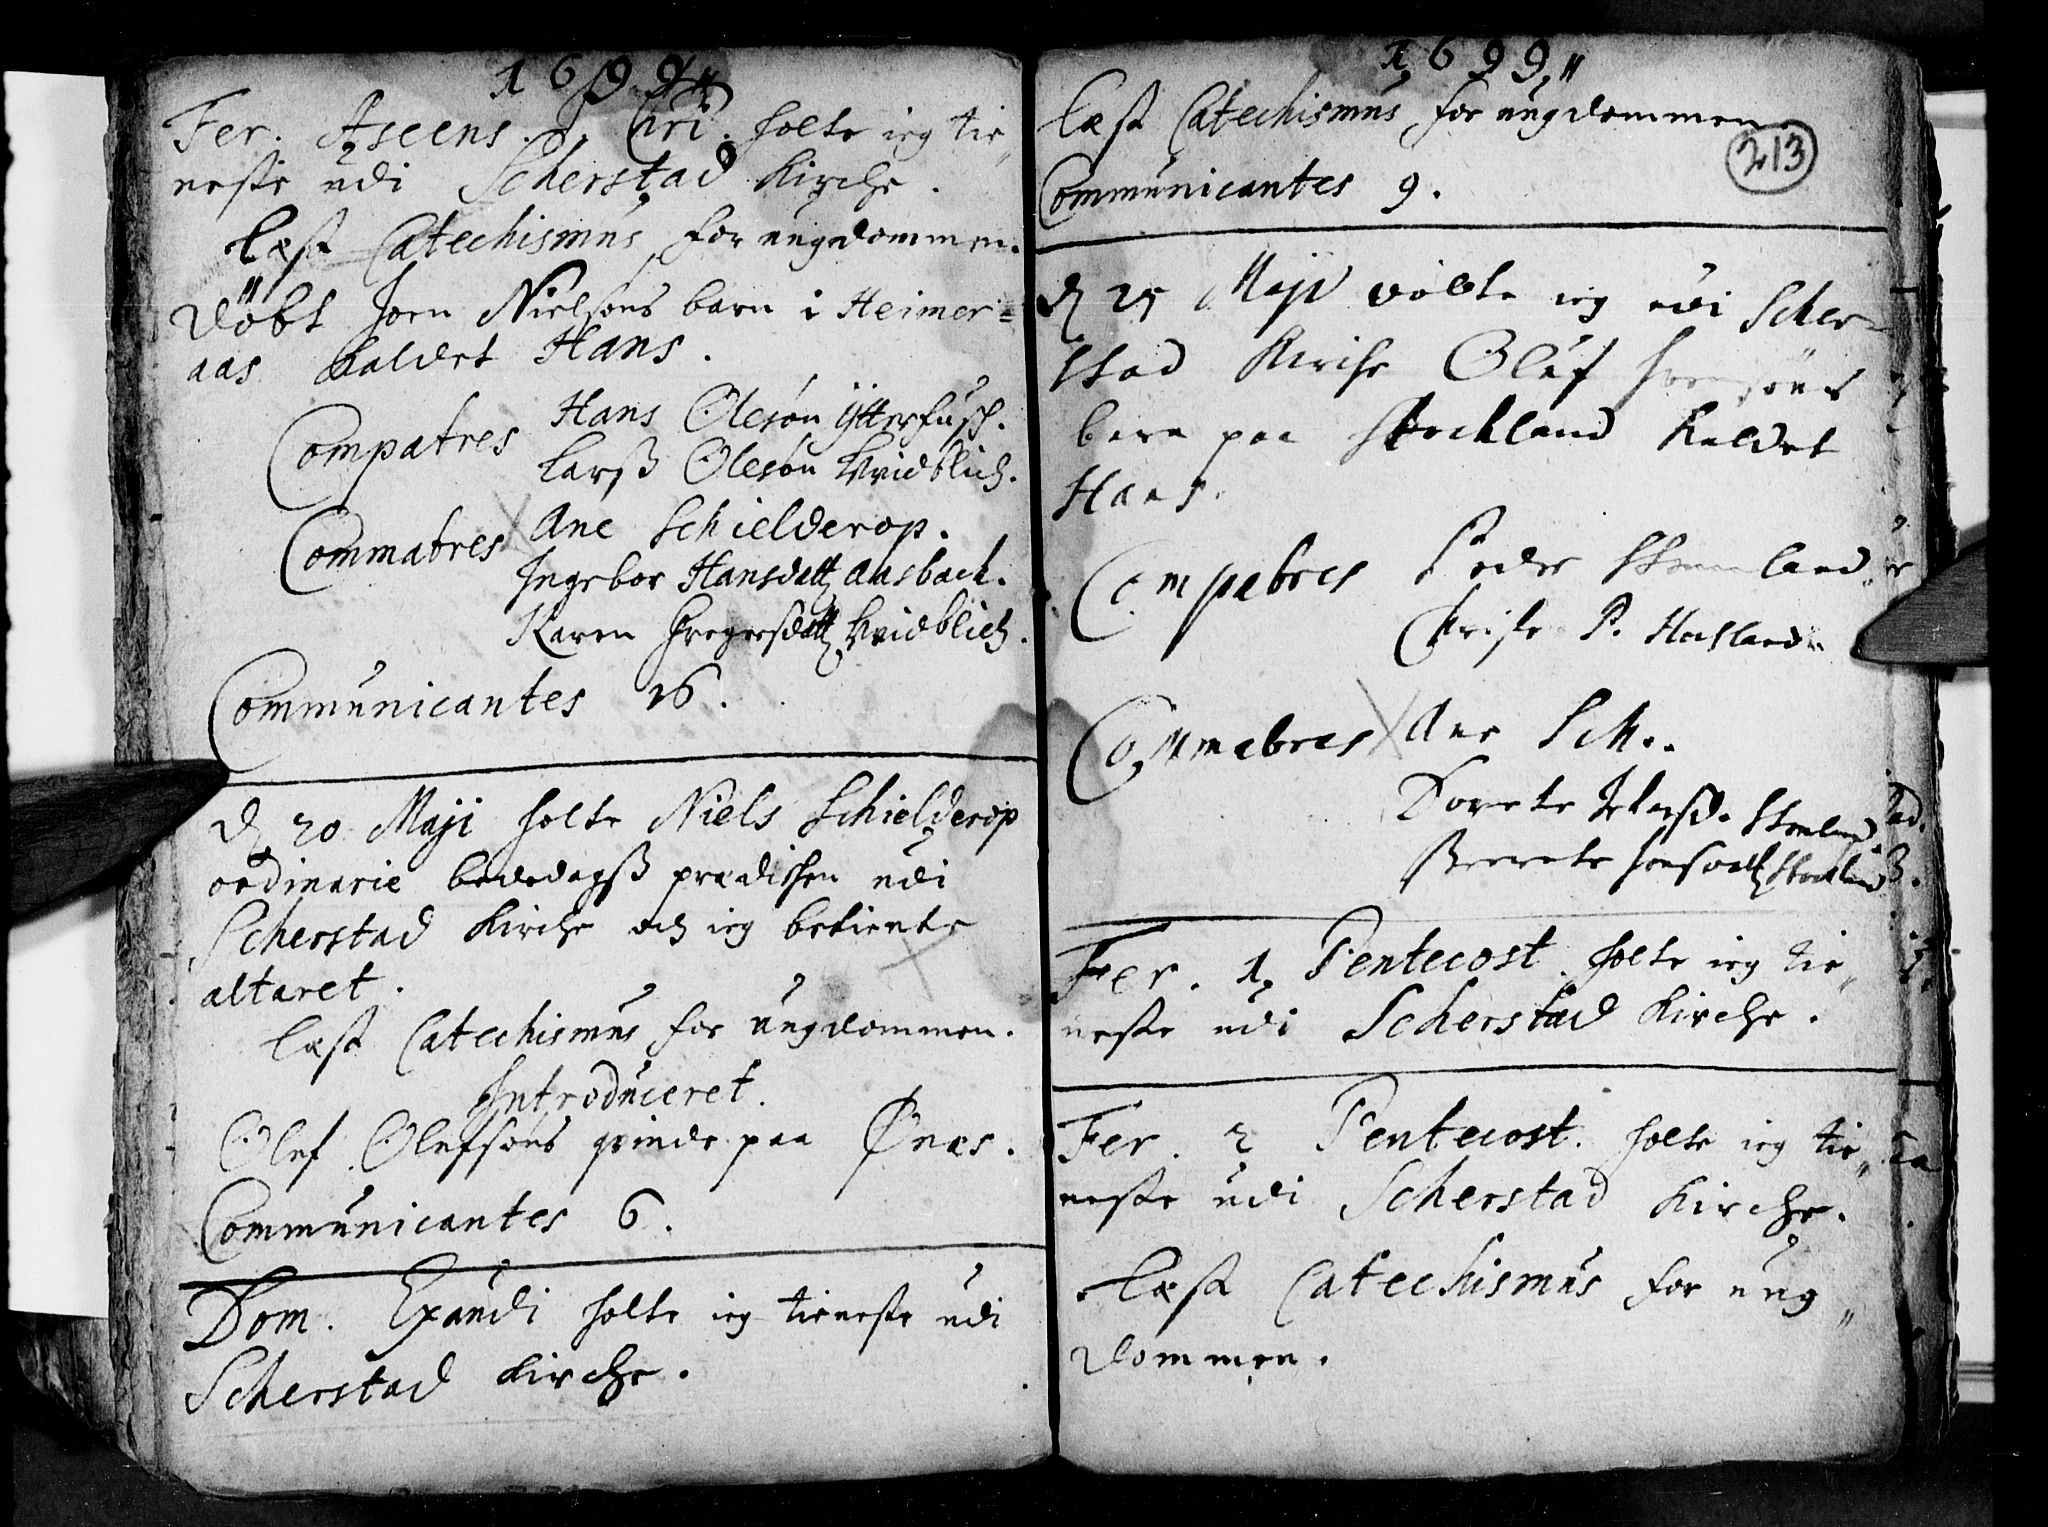 1699
Fer. Ascens. Chri. holte ieg tie„
neste udi Scherstad Kirche.
Læst Catechismus for ungdommen.
Döbt Joen Nielsöns barn i Heimer=
aas kaldet Hans.
Compatres Hans Olesön Ytterhusch.
Larsß Olesön Hvidblich.
Commatres Ane Schielderop.
Ingebor Hansdatt Aasbach.
Karen Gregersdatt Hvidblich.
Communicantes 16.
D 20 Maji holte Niels Schielderop
ordinarie bededagß prædichen udi
Scherstad Kirche och ieg betiente
altaret.
Læst Catechismus for ungdommen.
Introduceret.
Olef Olefsöns qvinde paa Önæs.
Communicantes 6.
Dom. Exaudi holte ieg tieneste udi
Scherstad Kirche.
1699
213
Læst Catechismus for ungdommen.
Communicantes 9.
D 25 Maji döbte ieg udi Scher-
stad Kirche Oluf
barn paa kaldet
Hans.
Compatres Peder
Christe P.
Commatres Ane Sch.
Dorete
Berrete
Fer. 1 Pentecost. holte ieg tie„
neste udi Scherstad Kirche.
Fer. 2 Pentecost. holte ieg tie„
neste udi Scherstad Kirche.
Læst Catechismus for ung„
dommen.